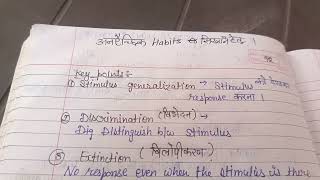 अनैच्छिक Habits को सिखाने हेतु ।
Key points:-
① Stimulus generalization → Stimulus को देखकर
response करना ।
② Discrimination (विभेदन)
Distinguish b/w Stimulus
③ Extinction (विलोपीकरण)
No response even when the stimulus is there